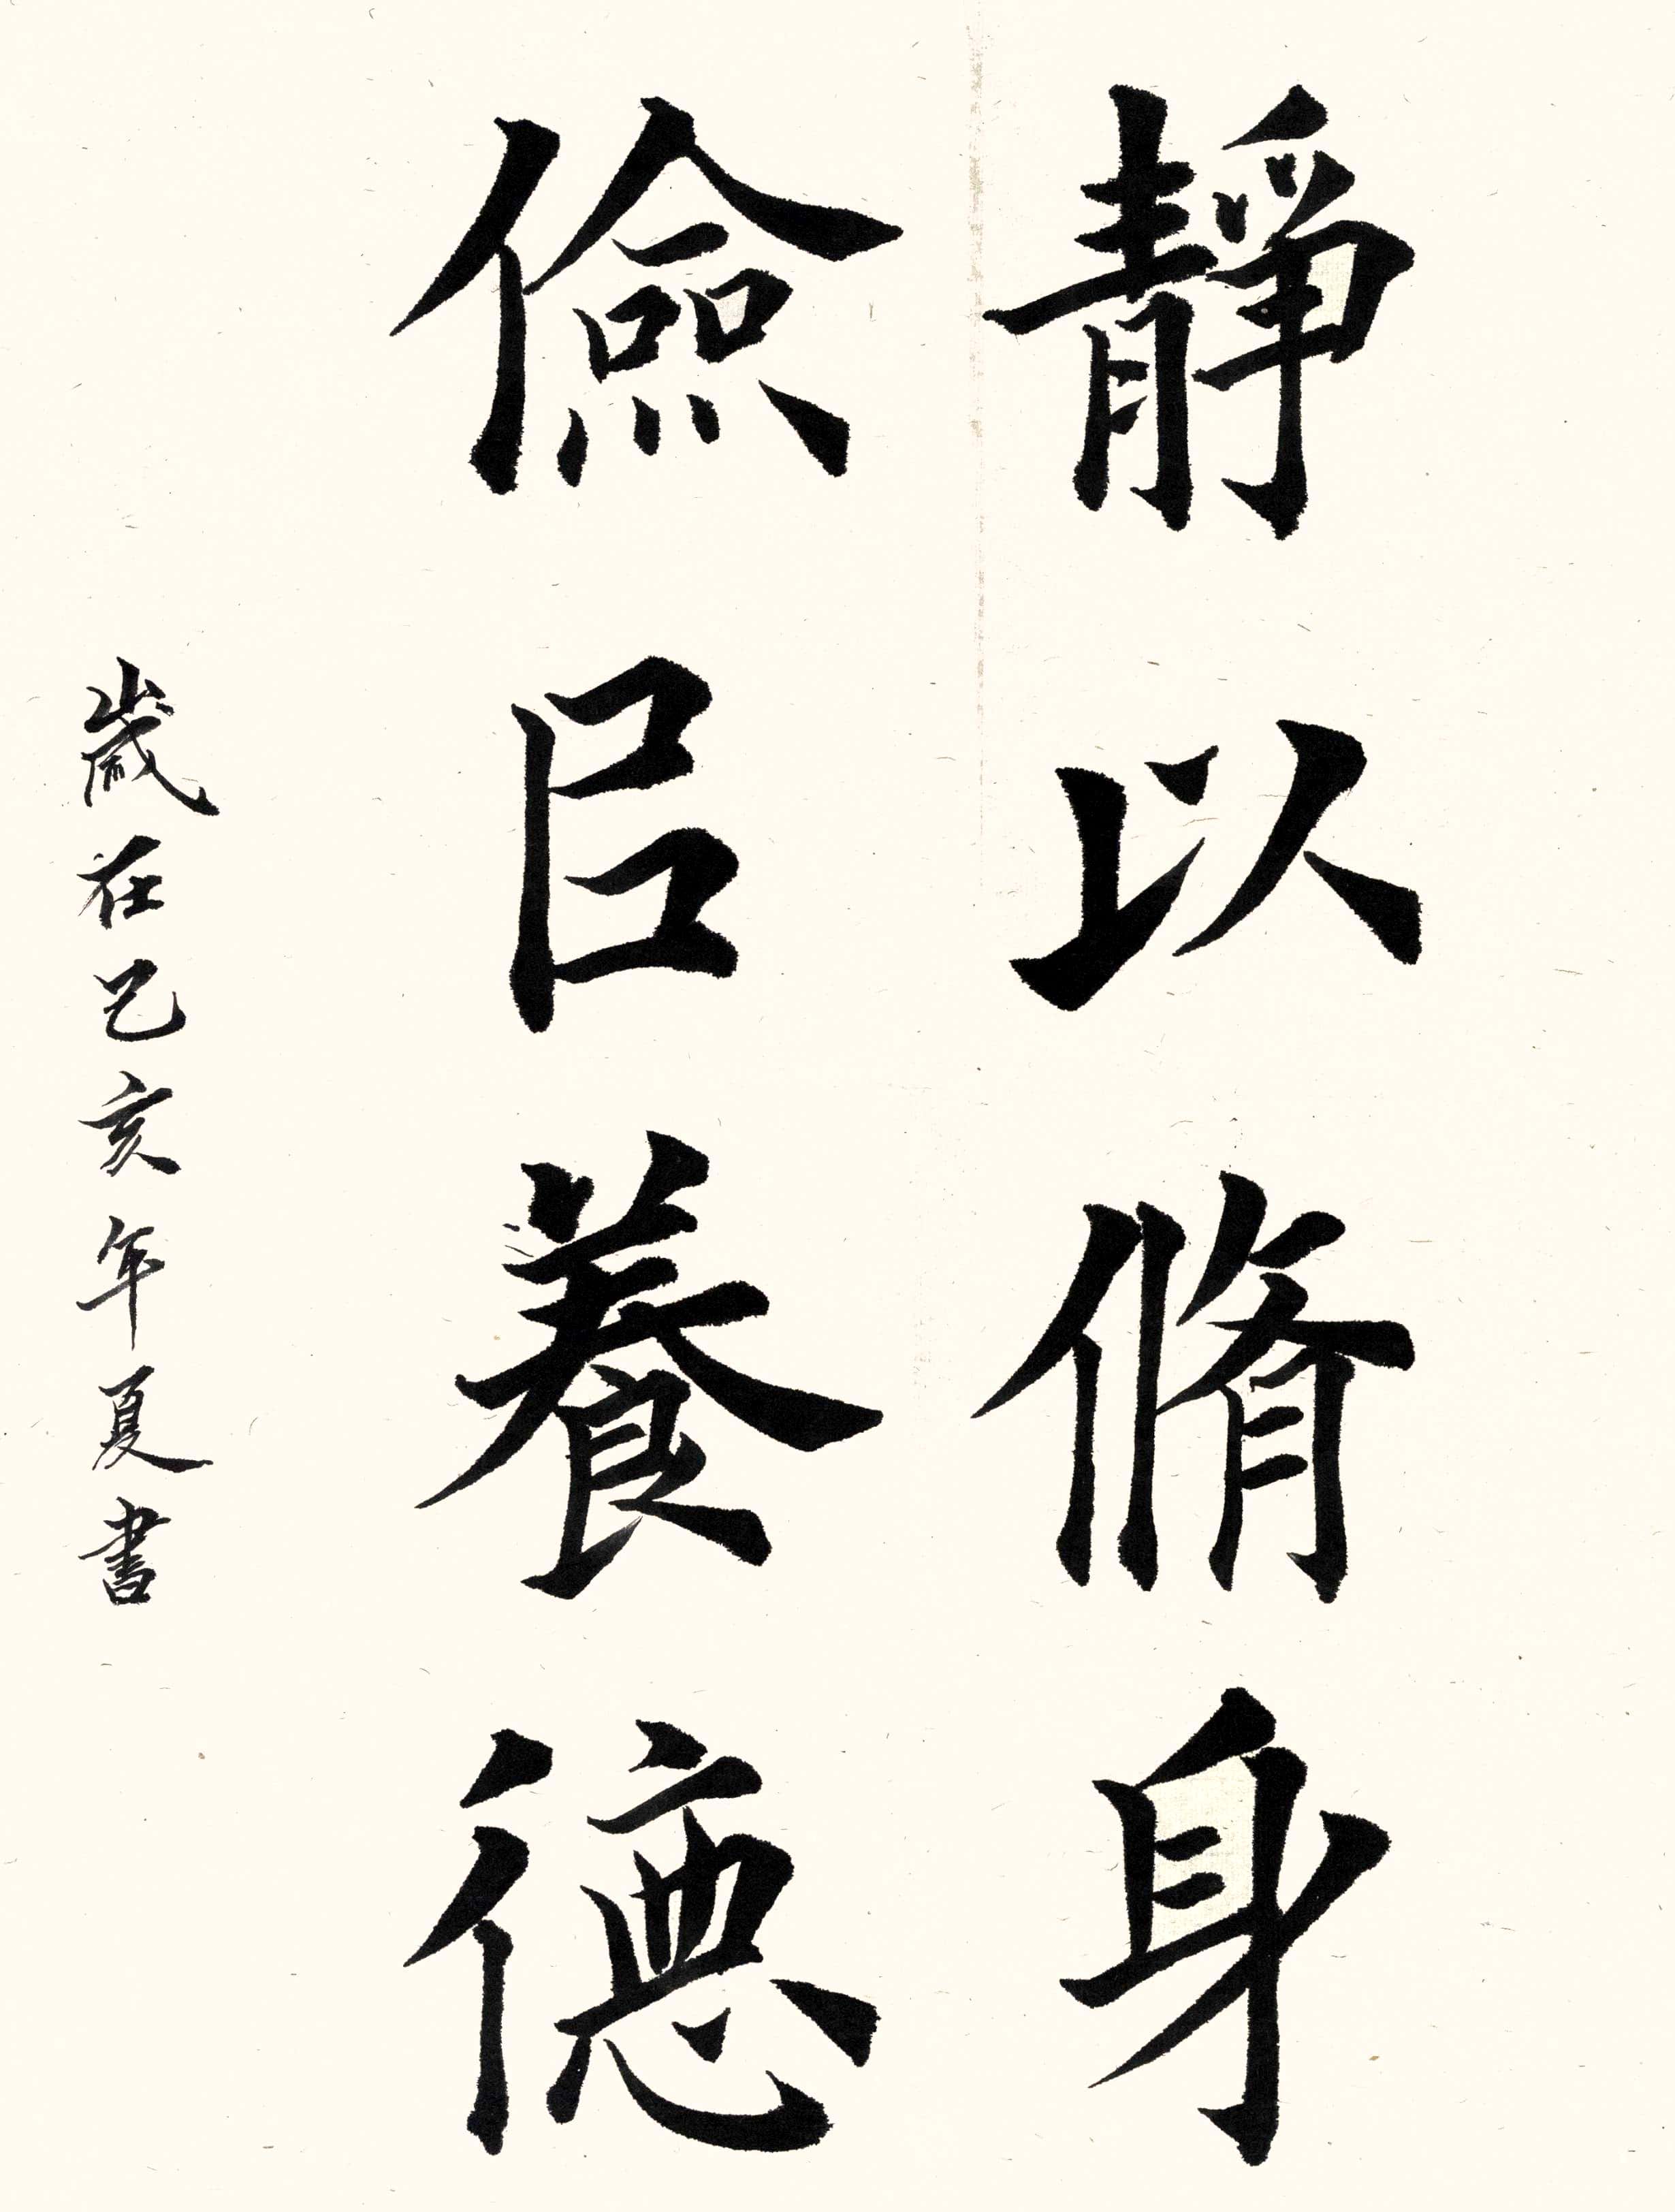 靜以脩身
儉㠯養德
歲在己亥年夏書